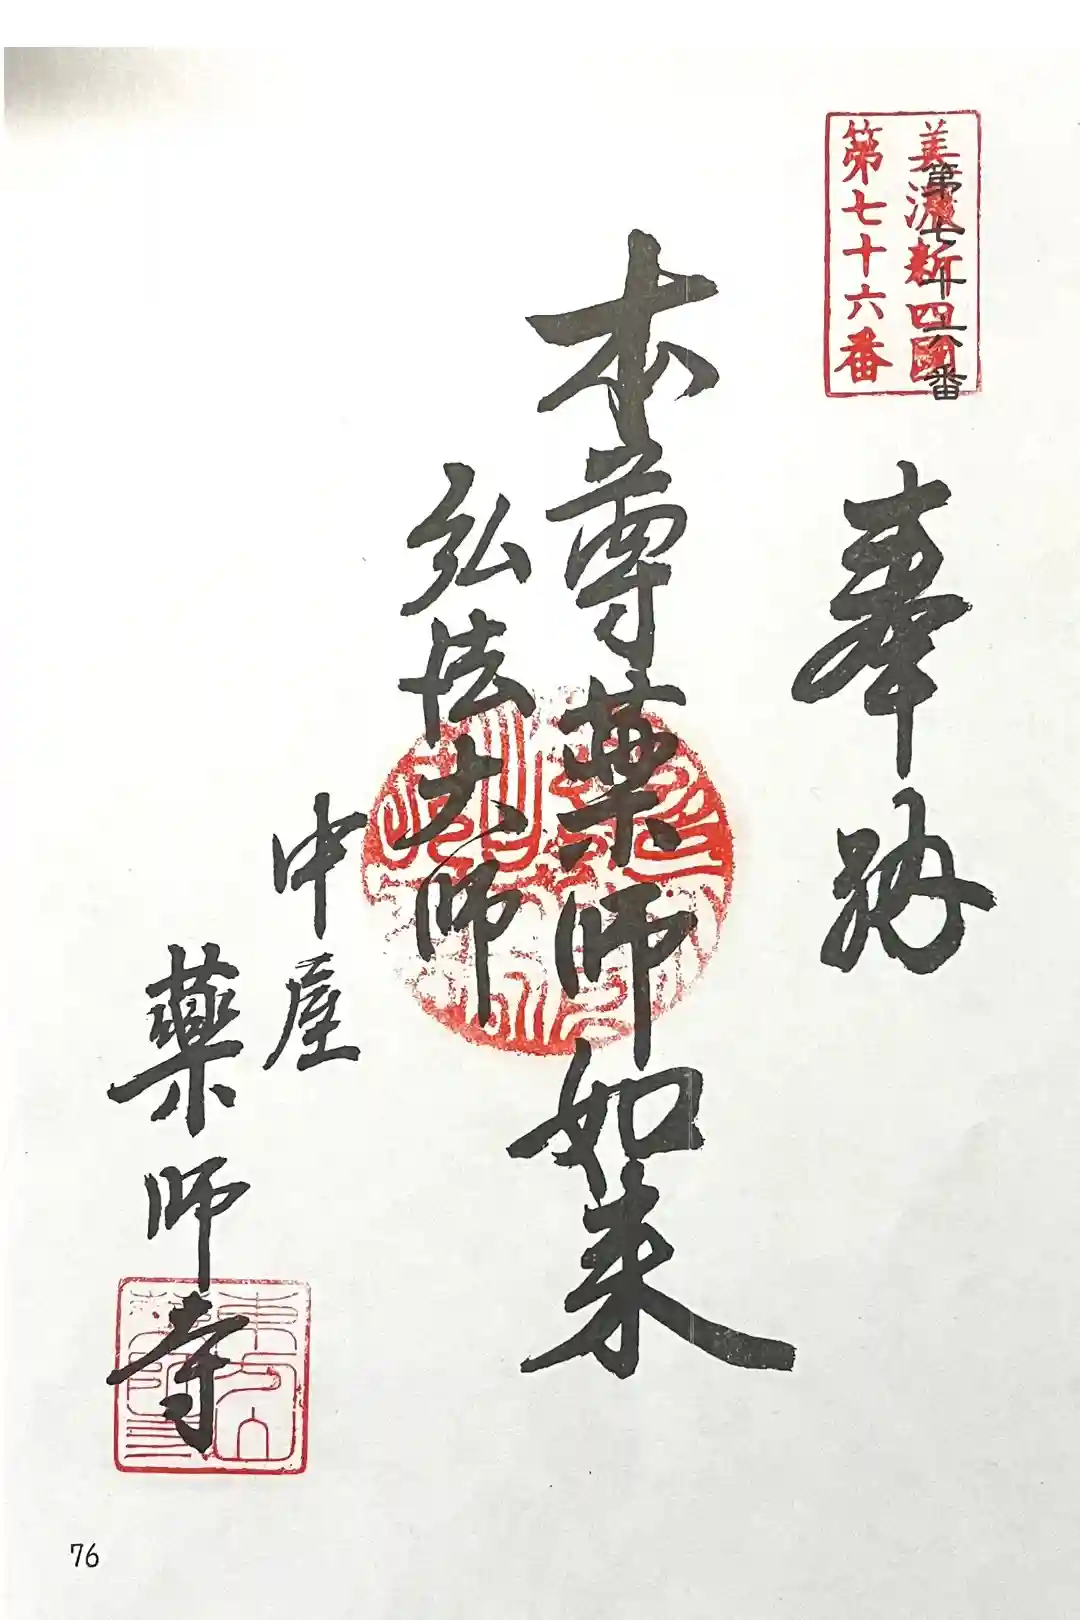 美濃新四國
第七十六番
第七十六番
奉納
本尊薬師如来
弘法大師
中屋
薬師寺
76